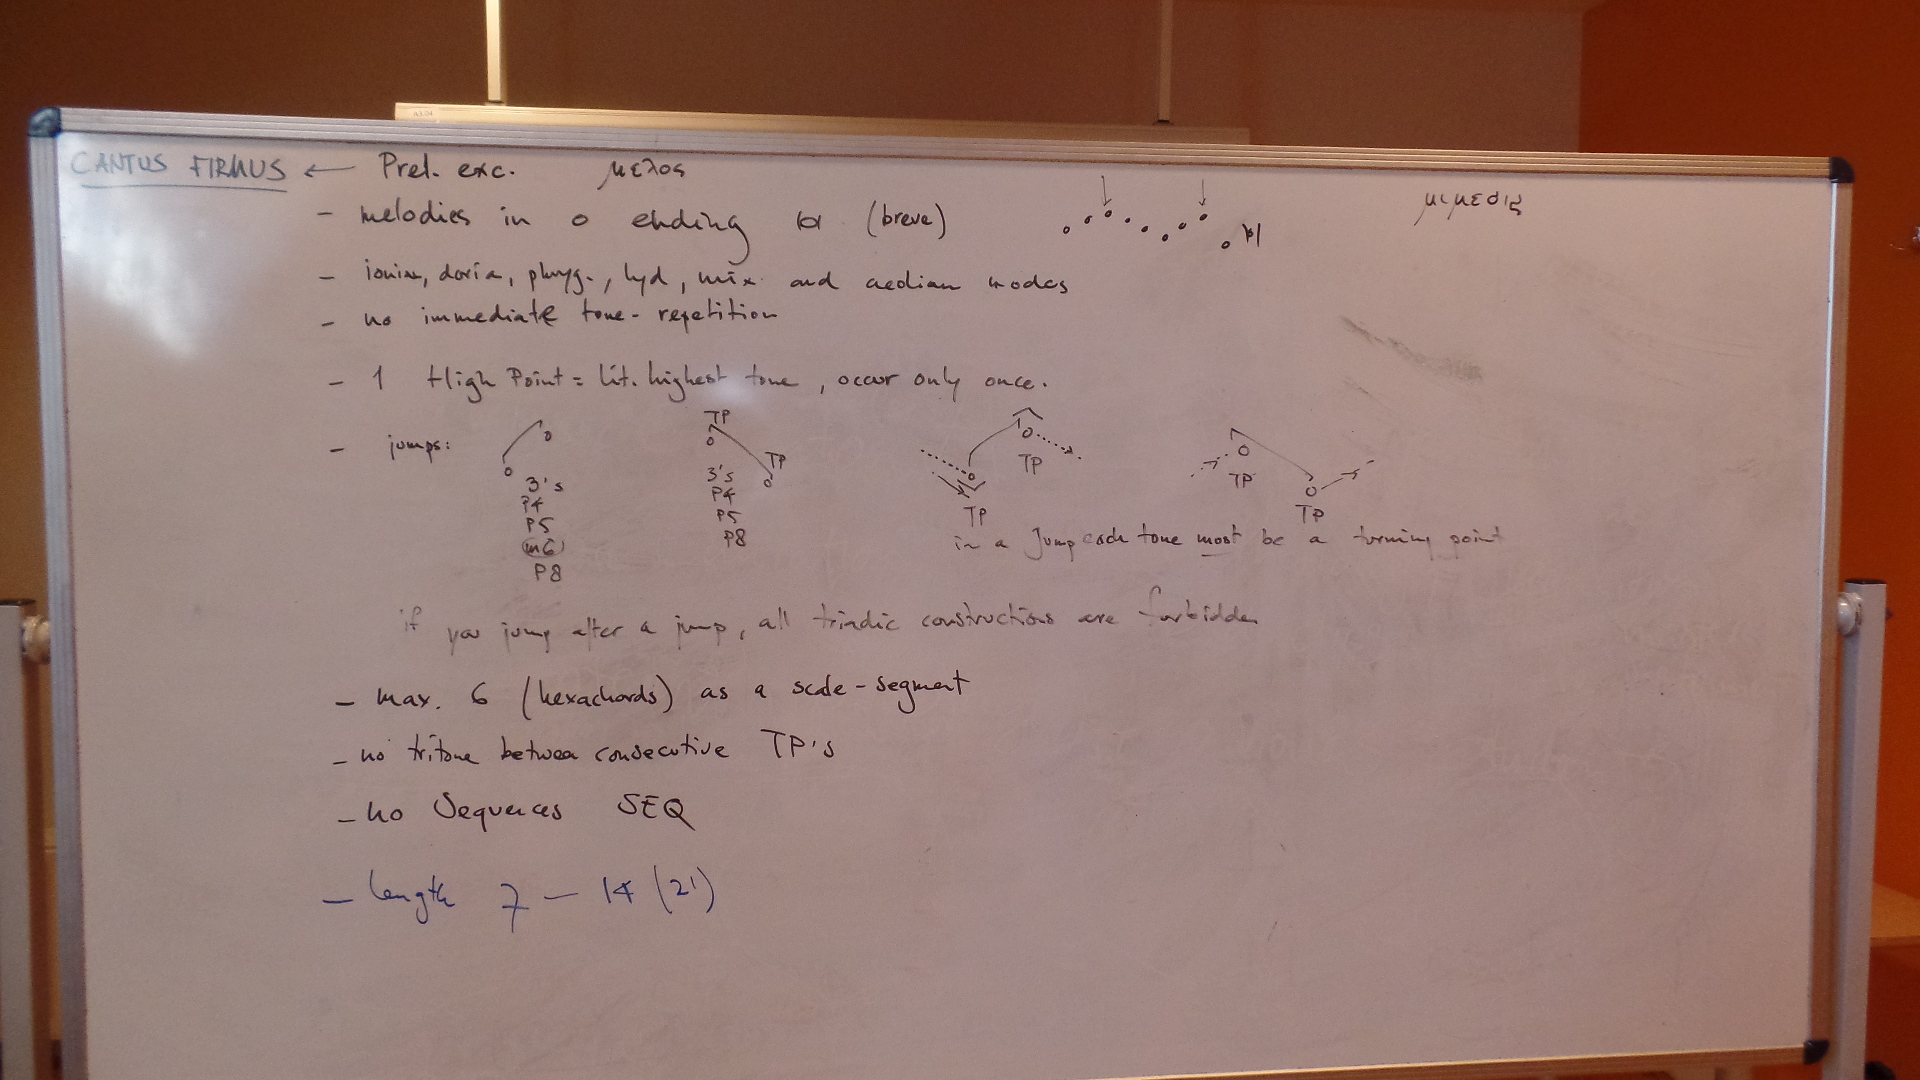 CANTUS FIRMUS ← Prel. exc. μελος
μιμεσις
- melodies in o ending |o| (breve)
- ionian, doria, phryg., lyd, mix. and aeolian modes
- no immediate tone-repetition
- 1 High Point = lit. highest tone, occur only once.
- jumps:
3's
P4
P5
m6
P8
TP
TP
3's
P4
P5
P8
TP
TP
TP
TP
in a jump each tone must be a turning point
if you jump after a jump, all triadic constructions are forbidden
- max. 6 (hexachords) as a scale-segment
- no tritone between consecutive TP's
- no Sequences SEQ
- length 7 - 14 (21)